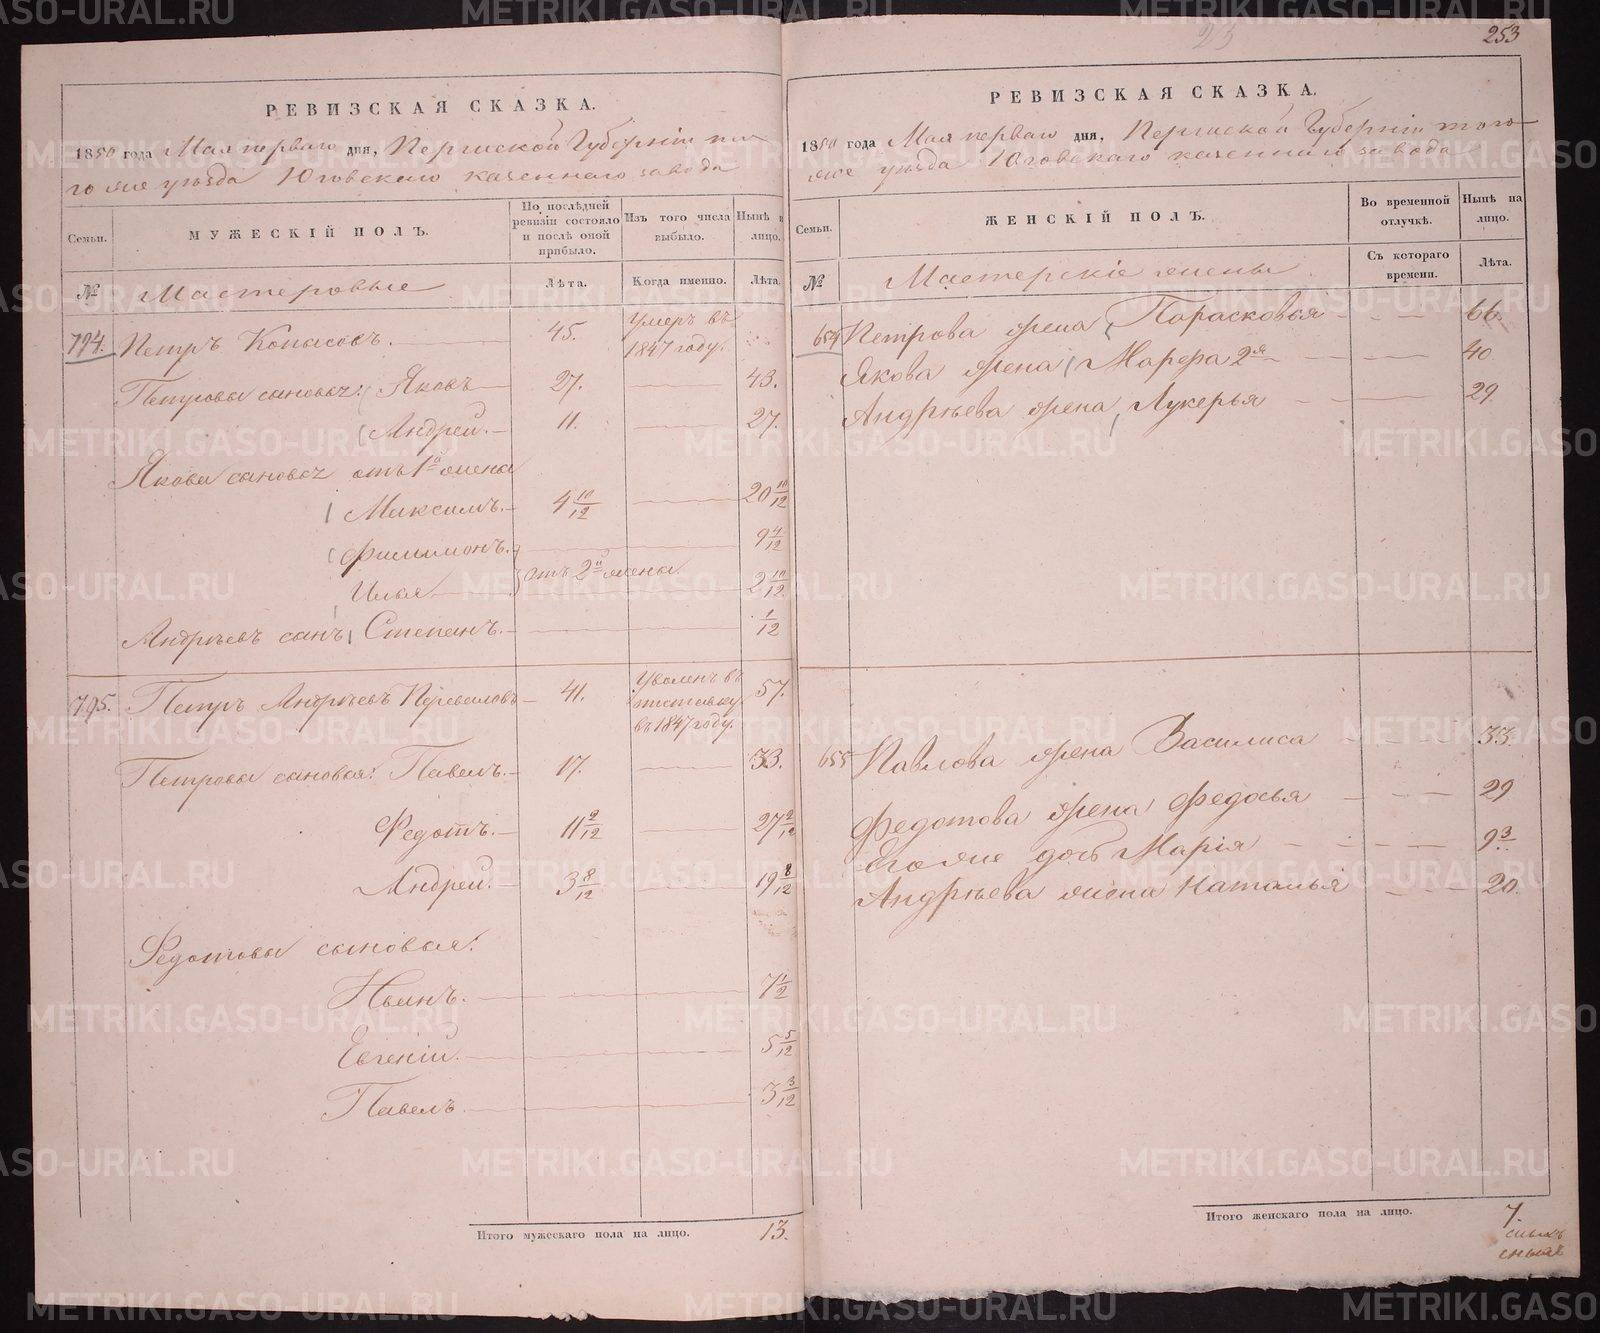 253
РЕВИЗСКАЯ СКАЗКА.
1850 года Мая перваго дня, Пермской Губерніи то
го же уѣзда Юговскаго казеннаго завода
Семьи.
МУЖЕСКІЙ ПОЛЪ.
По послѣдней ревизіи состояло и послѣ оной прибыло.
Изъ того числа выбыло.
Нынѣ на лицо.
№
Мастеровые
Лѣта.
Когда именно.
Лѣта.
794. Петръ 45. Умеръ въ 1847 году.
Петровы сыновья: Яковъ 27. 43.
Андрей. 11. 27.
Якова сыновья отъ 1й жены
Максимъ. 4 10/12 20 10/12
Филимонъ. 9 4/12
Илья отъ 2й жены 2 10/12
Андреевъ сынъ Степанъ. 1/12
795. Петръ Андрѣевъ 41. Уволенъ въ отставку въ 1847 году. 57.
Петровы сыновья: Павелъ. 17. 33.
Федотъ. 11 2/12 27 2/12
Андрей. 3 8/12 19 8/12
Федотовы сыновья:
Иванъ. 7 1/2
Евгеній. 5 5/12
Павелъ. 3 3/12
Итого мужескаго пола на лицо. 13.
РЕВИЗСКАЯ СКАЗКА.
1850 года Мая перваго дня, Пермской Губерніи того
же уѣзда Юговскаго казеннаго завода
Семьи.
ЖЕНСКІЙ ПОЛЪ.
Во временной отлучкѣ.
Нынѣ на лицо.
№
Мастерскіе жены
Съ котораго времени.
Лѣта.
654 Петрова жена Парасковья 66.
Якова жена Марфа 2я 40
Андрѣева жена Лукерья 29
655 Павлова жена Василиса 33.
Федотова жена Федосья 29
Его же дочь Марія 9 3
Андрѣева жена Наталья 20.
Итого женскаго пола на лицо. 7.
METRIKI.GASO-URAL.RU